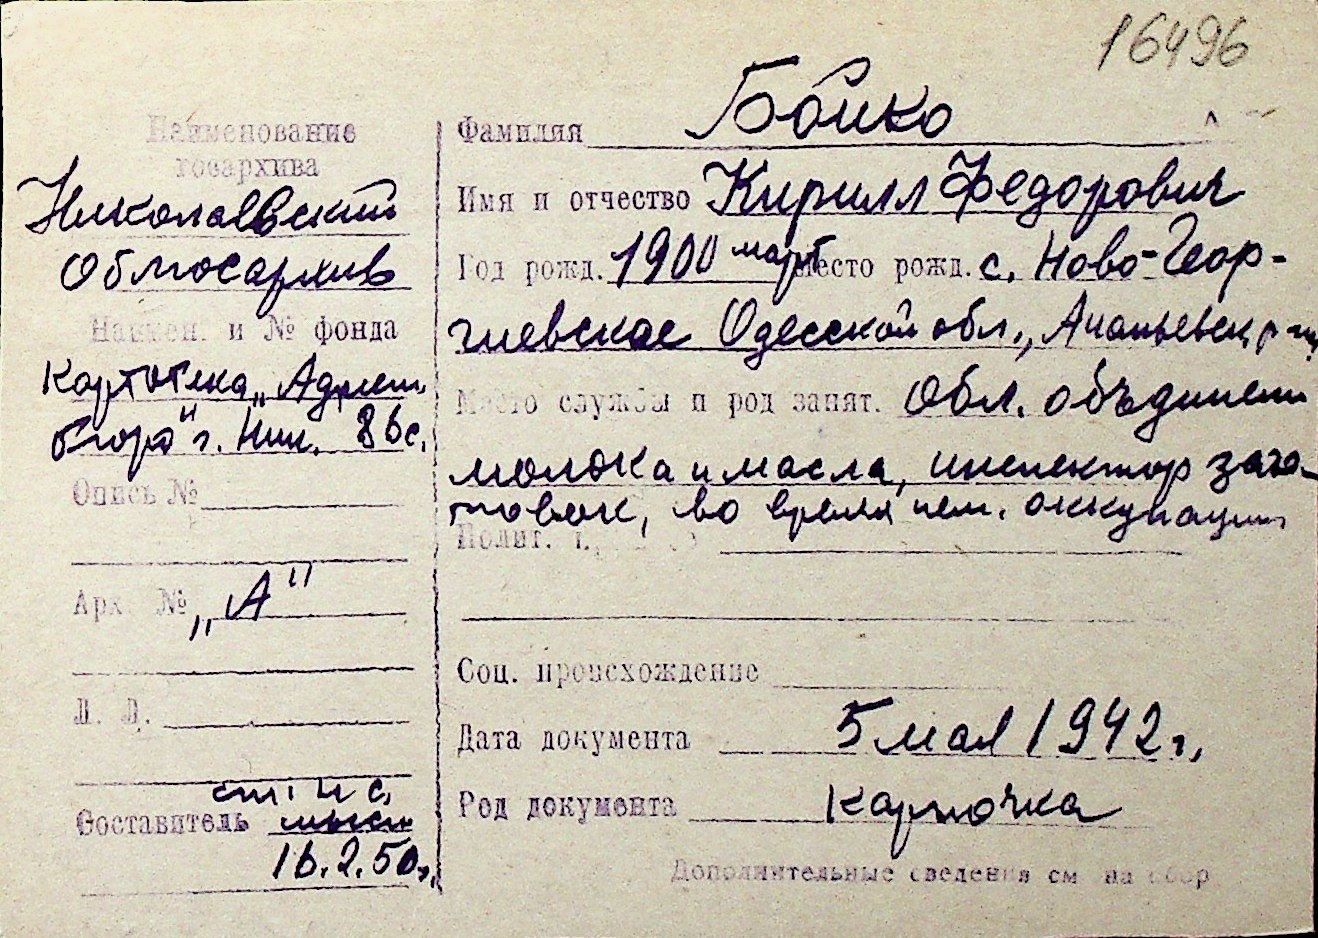 16496
Наименование
госархива
Николаевский
Облгосархив
Наимен. и № фонда
Картотека „Адресн.
бюро" г. Ник.
Опись №
Арх. № „А"
Л. Л.
Составитель
16.2.50г.
Фамилия Бойко
Имя и отчество Кирилл Федорович
Год рожд. 1900 март Место рожд. с. Ново-Геор-
гиевское Одесской обл., Ананьевск р-на
Место службы и род занят. Обл. объединени
молока и масла, инспектор заго-
товок, во время нем. оккупации
Полит.
Соц. происхождение
Дата документа 5 мая 1942г.
Род документа Карточка
Дополнительные сведения см на обор